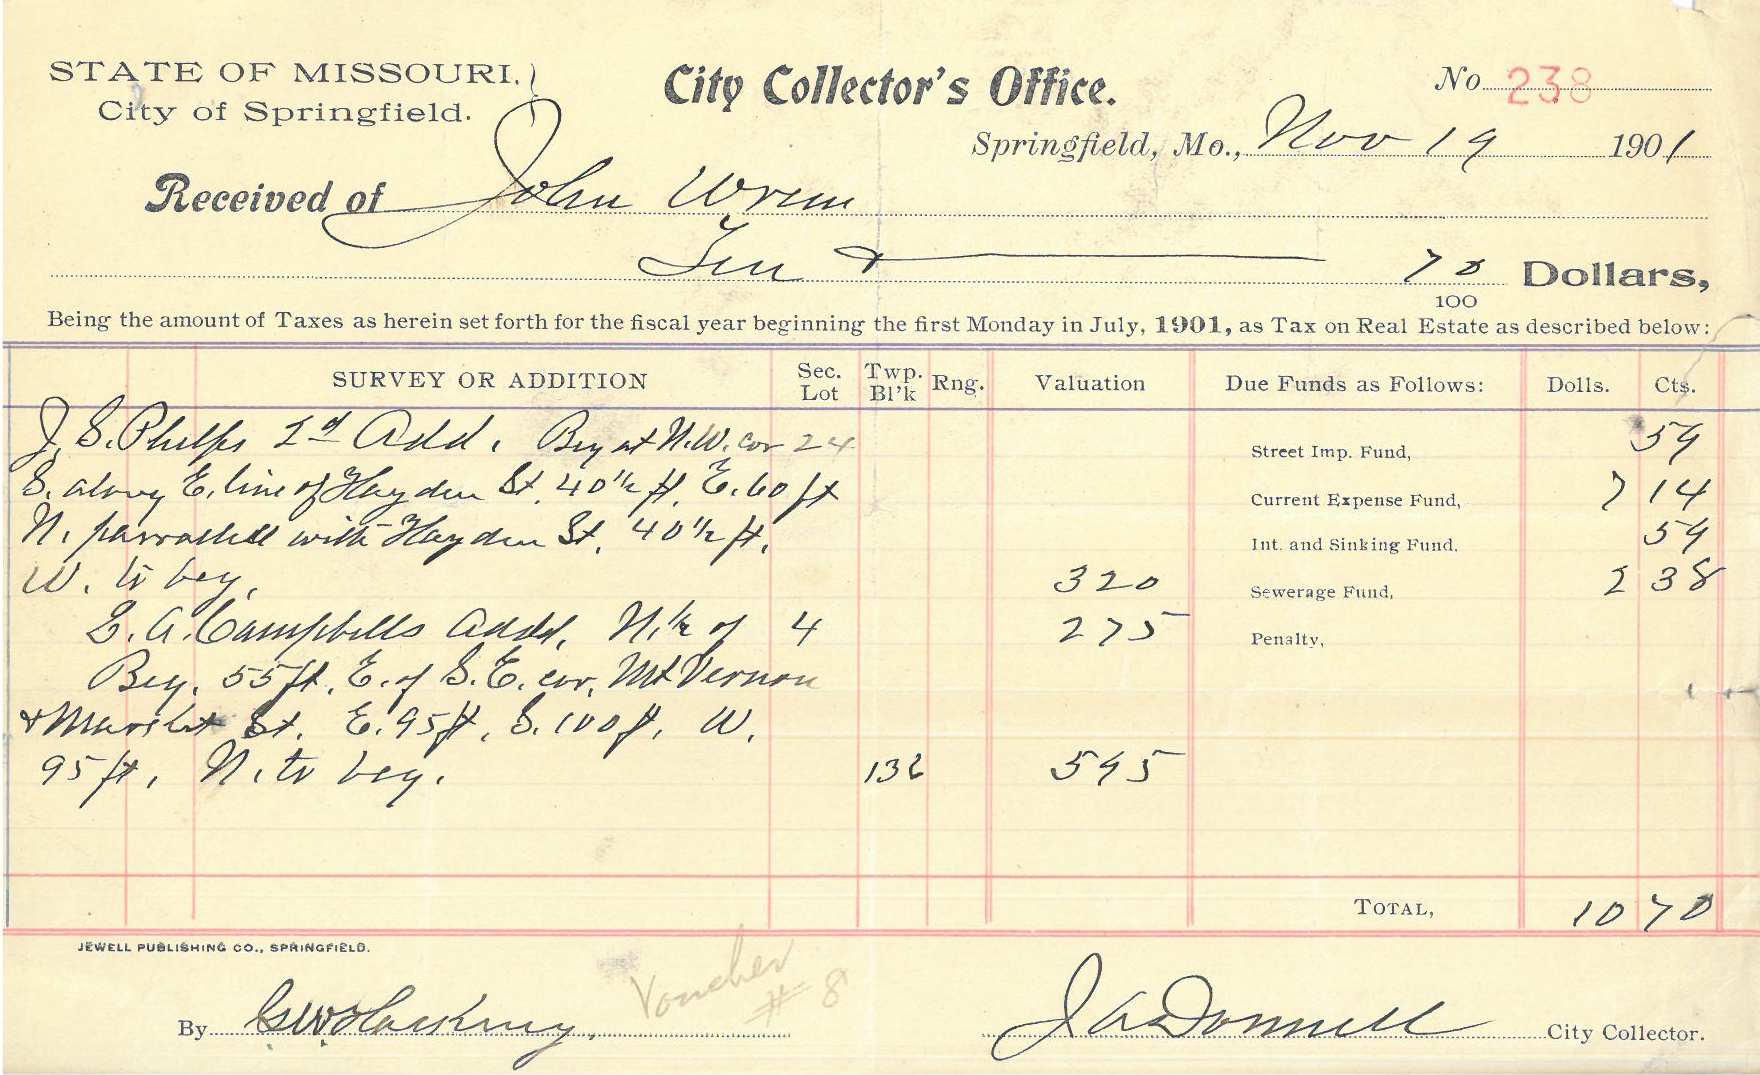 STATE OF MISSOURI,
City of Springfield.
City Collector's Office.
No. 238
Springfield, Mo., Nov 19 1901
Received of John Wrenn
Ten & 70/100 Dollars,
Being the amount of Taxes as herein set forth for the fiscal year beginning the first Monday in July, 1901, as Tax on Real Estate as described below:
SURVEY OR ADDITION Sec. Lot Twp. Bl'k Rng. Valuation Due Funds as Follows: Dolls. Cts.
J. S. Phelps Add. Beg at N.W. cor 24 Street Imp. Fund, 59
S. along E. line of Hayden St. 40 1/2 ft. E. 60 ft Current Expense Fund, 7 14
N. parrallell with Hayden St. 40 1/2 ft. Int. and Sinking Fund, 59
W. to beg. 320 Sewerage Fund, 2 38
E. A. Campbells Add, N. 1/2 of 4 275 Penalty,
Beg. 55 ft. E. of S.E. cor. Mt Vernon
& Market St. E. 95 ft, S. 100 ft, W.
95 ft, N. to beg. 136 595
TOTAL, 10 70
JEWELL PUBLISHING CO., SPRINGFIELD.
Voucher
# 8
By
City Collector.